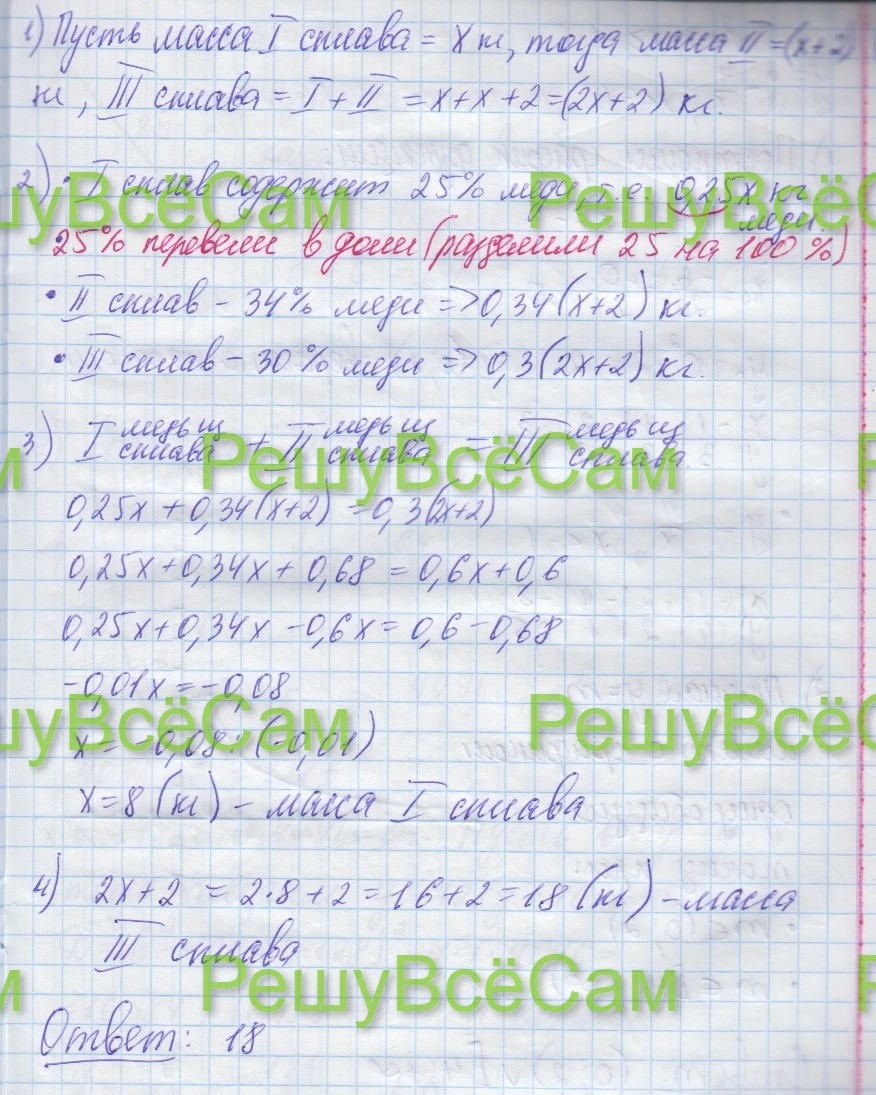 1) Пусть масса I сплава = x кг, тогда масса II = (x+2)
кг, III сплава = I + II = x + x + 2 = (2x+2) кг.
2) • I сплав содержит 25% меди, т.е. 0,25x кг
меди.
РешуВсёСам РешуВсёСам
25% перевели в доли (разделили 25 на 100%)
• II сплав - 34% меди => 0,34(x+2) кг.
• III сплав - 30% меди => 0,3(2x+2) кг.
3) I медь из сплава + II медь из сплава = III медь из сплава.
РешуВсёСам
0,25x + 0,34(x+2) = 0,3(2x+2)
0,25x + 0,34x + 0,68 = 0,6x + 0,6
0,25x + 0,34x - 0,6x = 0,6 - 0,68
-0,01x = -0,08
РешуВсёСам РешуВсёСам
x = -0,08 : (-0,01)
x = 8 (кг) - масса I сплава
4) 2x + 2 = 2·8 + 2 = 16 + 2 = 18 (кг) - масса
III сплава
РешуВсёСам
Ответ: 18